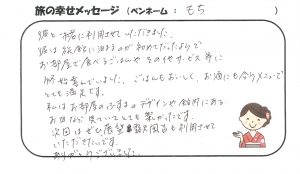 旅の幸せメッセージ (ペンネーム： もち )
娘と一緒に利用させていただきました。
娘は旅館に泊まるのが初めてだったようで
お部屋で食べるごはんや その他サービス等に
終始喜んでいました。ごはんもおいしく、お酒にも合うメニューで
とても満足です。
私はお部屋のふすまのデザインや館内にある
お花など見ていてとても楽しかったです。
次回はぜひ展望風呂も利用させて
いただきたいです。
ありがとうございました。